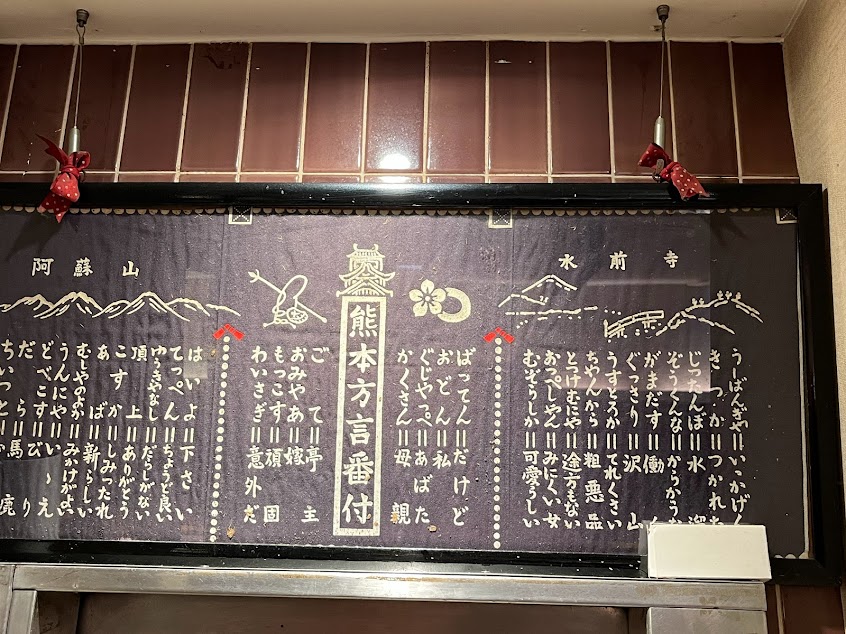 水前寺
うーばんぎゃ＝いっかげん
きつか＝つかれ
じったんぼ＝水溜
ぞうくんな＝からかうな
がまだす＝働
ぐっさり＝沢山
うすとろか＝てれくさい
ちゃんから＝粗悪品
とつけむにや＝途方もない
おっぺしゃん＝みにくい女
むぞらしか＝可愛らしい
ばってん＝だけど
おどん＝私
ぐじゃっぺ＝あばた
かくさん＝母親
熊本方言番付
ごて＝亭主
おみやあ＝嫁
もっこす＝頑固
わいさぎ＝意外だ
阿蘇山
はいよ＝下さい
てっぺん＝ちょうど良い
ゆうきやなし＝だらしがない
頂上＝ありがとう
こすか＝しみったれ
あば＝新らしい
むしゃのよか＝みかけがよい
うんにゃ＝いゝえ
＝馬鹿